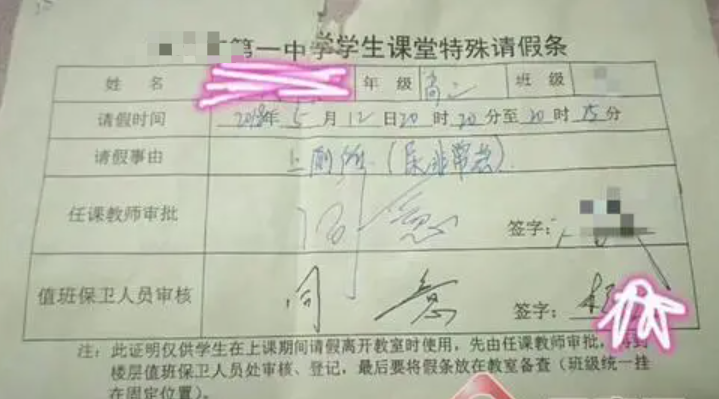 第一中学学生课堂特殊请假条
姓名 年级 高二 班级
请假时间 2018年5月12日20时20分至20时25分
请假事由 上厕所.(尿非常急)
任课教师审批 同意 签字:
值班保卫人员审核 同意 签字:
注:此证明仅供学生在上课期间请假离开教室时使用,先由任课教师审批,再到
楼层值班保卫人员处审核、登记,最后要将假条放在教室备查(班级统一挂
在固定位置)。